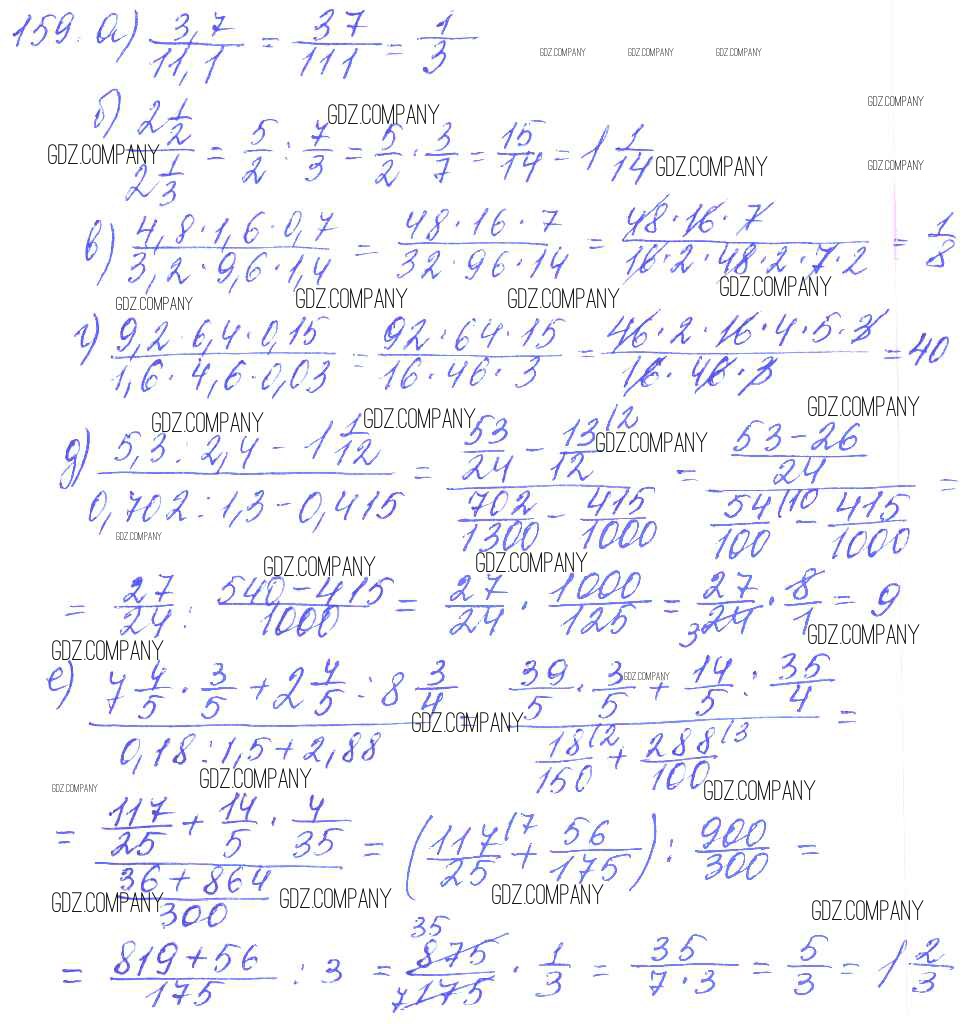 159. а) 3,7/11,1 = 37/111 = 1/3
GDZ.COMPANY GDZ.COMPANY GDZ.COMPANY
GDZ.COMPANY
GDZ.COMPANY
б) 2 1/2 / 2 1/3 = 5/2 : 7/3 = 5/2 · 3/7 = 15/14 = 1 1/14
GDZ.COMPANY GDZ.COMPANY GDZ.COMPANY
в) 4,8·1,6·0,7 / 3,2·9,6·1,4 = 48·16·7 / 32·96·14 = 48·16·7 / 16·2·48·2·7·2 = 1/8
GDZ.COMPANY GDZ.COMPANY GDZ.COMPANY GDZ.COMPANY
г) 9,2·6,4·0,15 / 1,6·4,6·0,03 = 92·64·15 / 16·46·3 = 46·2·16·4·5·3 / 16·46·3 = 40
GDZ.COMPANY GDZ.COMPANY GDZ.COMPANY GDZ.COMPANY
д) 5,3:2,4 - 1 1/12 / 0,702:1,3-0,415 = 53/24 - 13/12 (2 / 702/1300 - 415/1000 = 53-26/24 / 54/100 (10 - 415/1000 =
GDZ.COMPANY
GDZ.COMPANY GDZ.COMPANY
= 27/24 : 540-415/1000 = 27/24 · 1000/125 = 27/24 3 · 8/1 = 9
GDZ.COMPANY GDZ.COMPANY
е) 7 4/5 · 3/5 + 2 4/5 : 8 3/4 / 0,18:1,5+2,88 = 39/5 · 3/5 + 14/5 : 35/4 / 18/150 (2 + 288/100 (3 =
GDZ.COMPANY GDZ.COMPANY
GDZ.COMPANY GDZ.COMPANY GDZ.COMPANY
= 117/25 + 14/5 · 4/35 / 36+864/300 = (117/25 (7 + 56/175) : 900/300 =
GDZ.COMPANY GDZ.COMPANY GDZ.COMPANY GDZ.COMPANY
= 819+56/175 : 3 = 35 875/175 7 · 1/3 = 35/7·3 = 5/3 = 1 2/3